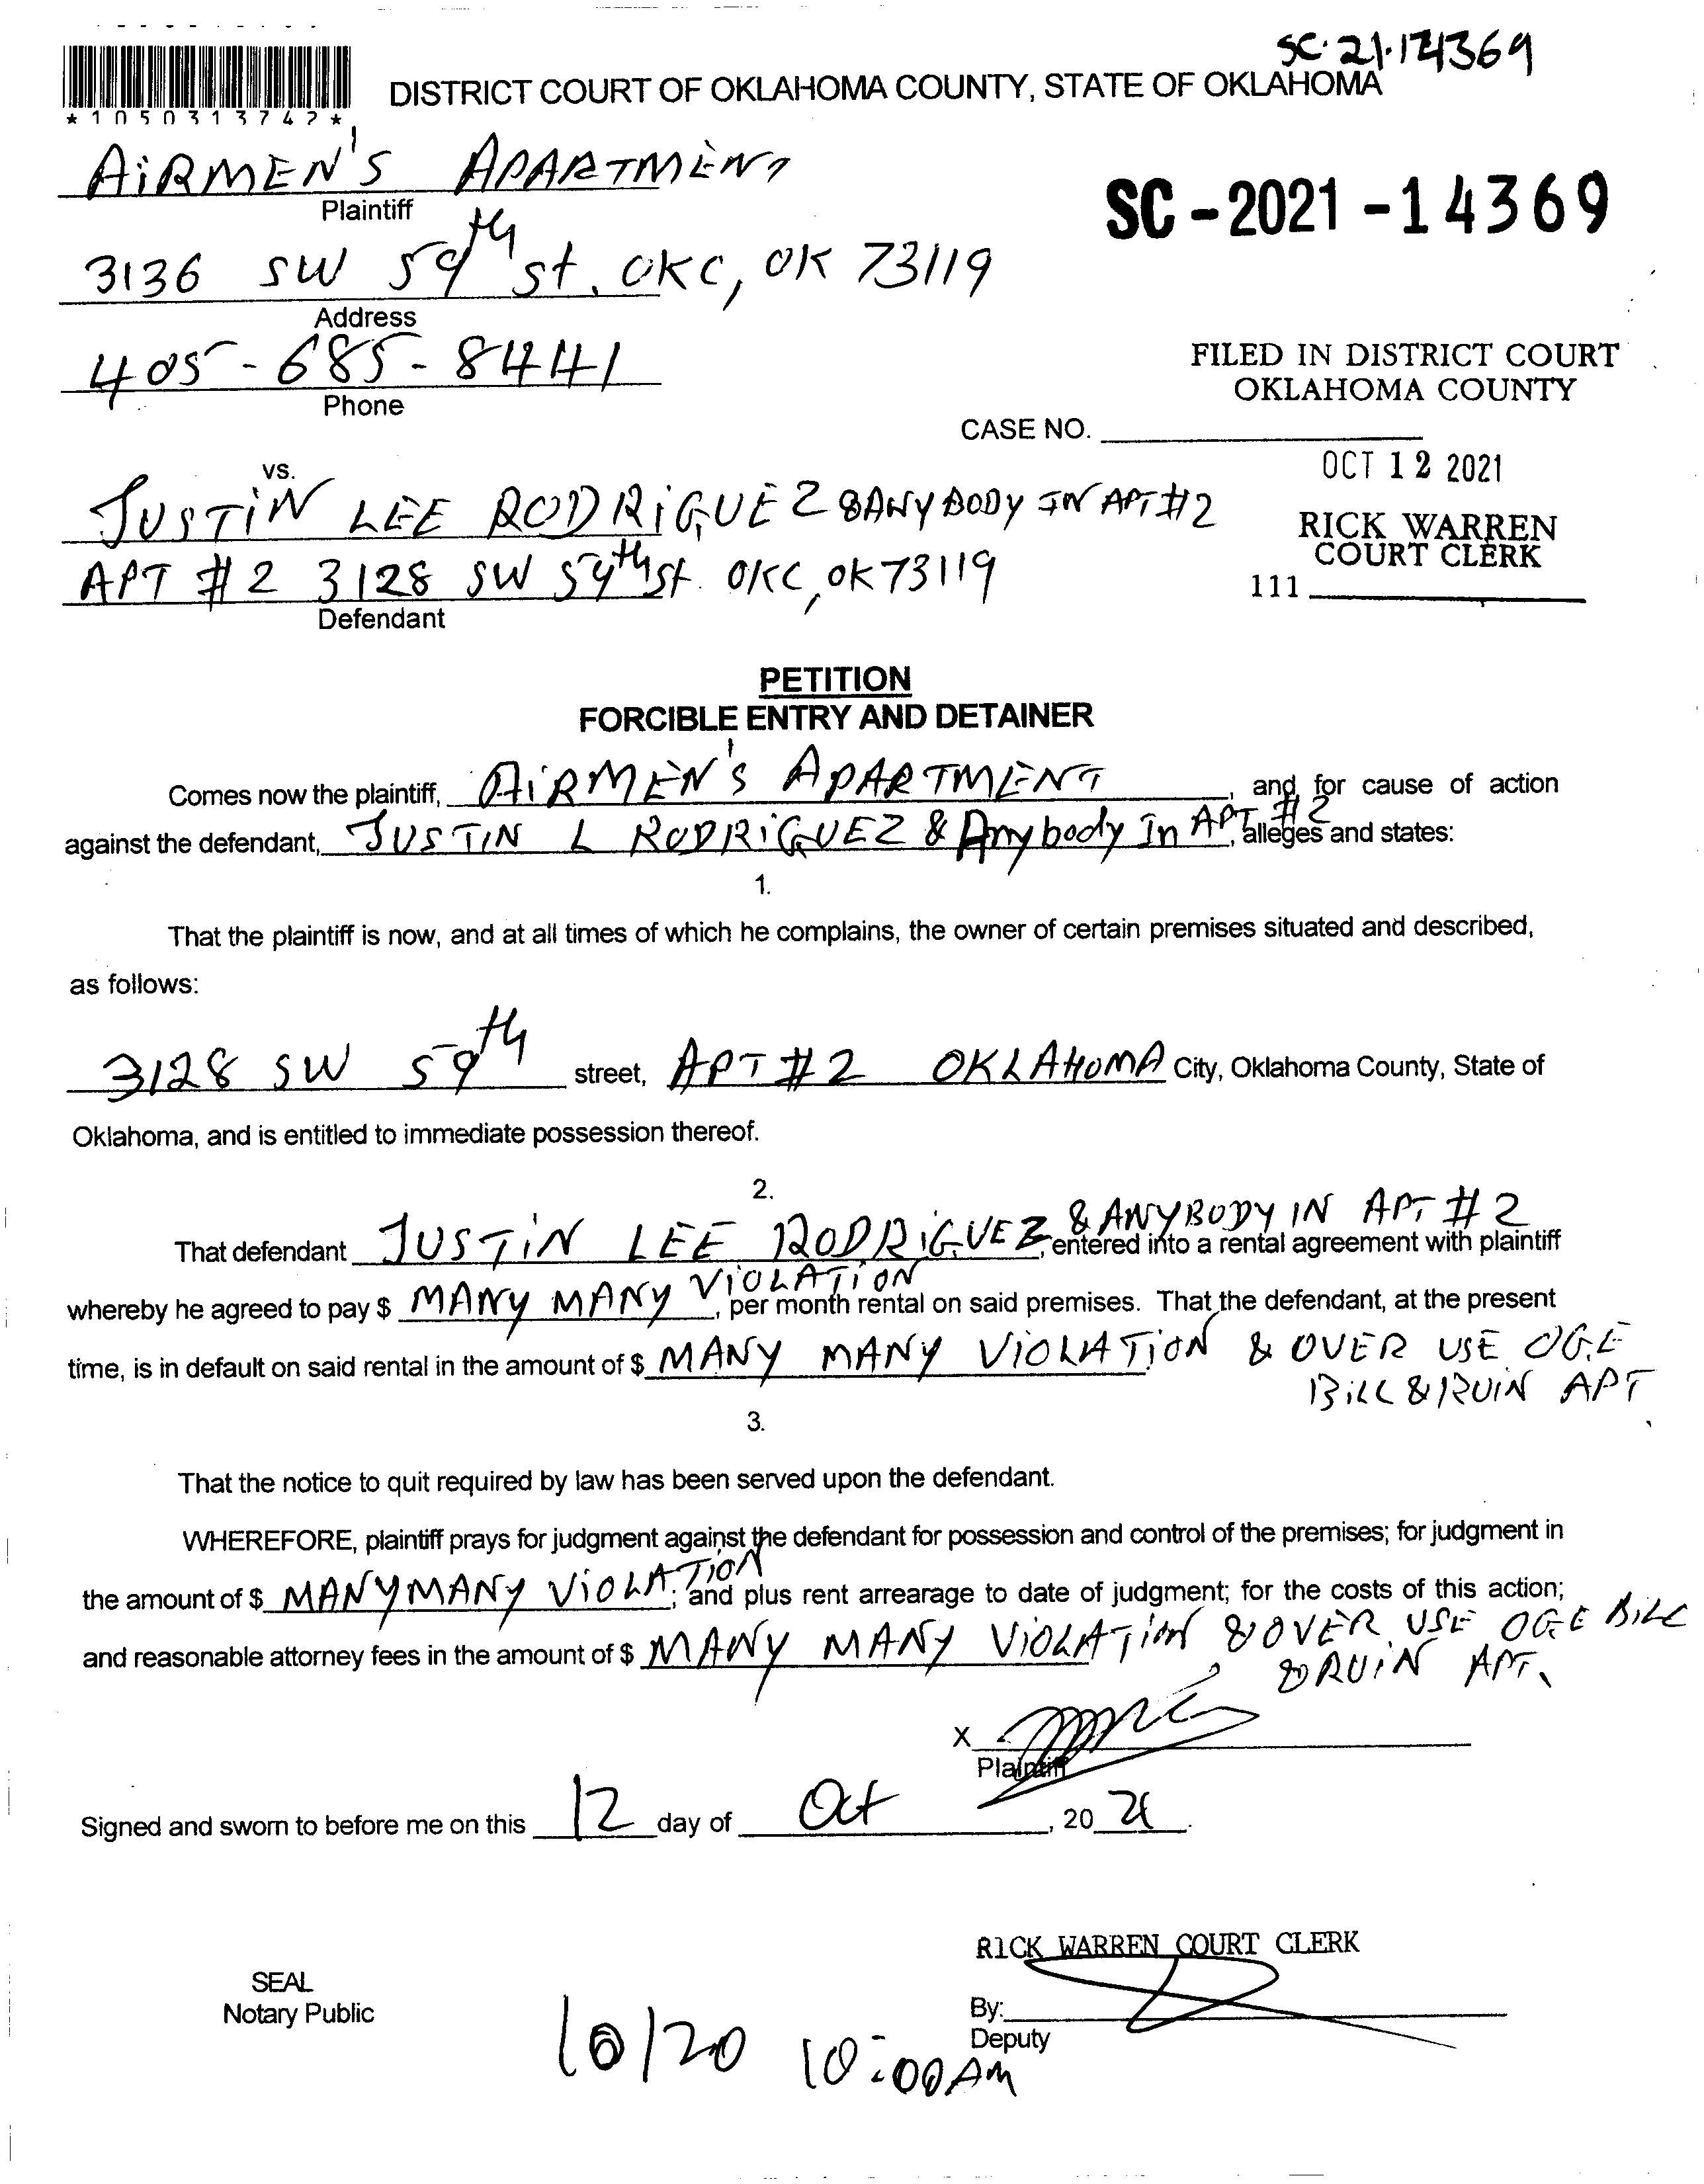 SC-21-14369
*1050313742*
DISTRICT COURT OF OKLAHOMA COUNTY, STATE OF OKLAHOMA
AiRMEN'S APARTMENT
Plaintiff
SC-2021-14369
3136 SW 59th St. OKC, OK 73119
Address
405-685-8441
Phone
FILED IN DISTRICT COURT
OKLAHOMA COUNTY
CASE NO.
OCT 12 2021
vs.
JUSTiN LEE RODRiGUEZ & ANYBODY IN APT #2
RICK WARREN
COURT CLERK
APT #2 3128 SW 59th St. OKC, OK 73119
111
Defendant
PETITION
FORCIBLE ENTRY AND DETAINER
Comes now the plaintiff, AiRMEN'S APARTMENT, and for cause of action
against the defendant, JUSTIN L RODRiGUEZ & Anybody In APT #2, alleges and states:
1.
That the plaintiff is now, and at all times of which he complains, the owner of certain premises situated and described,
as follows:
3128 SW 59th street, APT #2 OKLAHOMA City, Oklahoma County, State of
Oklahoma, and is entitled to immediate possession thereof.
2.
That defendant JUSTiN LEE RODRiGUEZ & ANYBODY IN APT #2, entered into a rental agreement with plaintiff
whereby he agreed to pay $ MANY MANY ViOLATiON, per month rental on said premises. That the defendant, at the present
time, is in default on said rental in the amount of $ MANY MANY ViOLATiON & OVER USE OGE
BiLL & RUiN APT
3.
That the notice to quit required by law has been served upon the defendant.
WHEREFORE, plaintiff prays for judgment against the defendant for possession and control of the premises; for judgment in
the amount of $ MANY MANY ViOLATiON; and plus rent arrearage to date of judgment; for the costs of this action;
and reasonable attorney fees in the amount of $ MANY MANY ViOLATiON & OVER USE OGE BiLL
& RUiN APT.
X
Plaintiff
Signed and sworn to before me on this 12 day of Oct, 20 21.
RICK WARREN COURT CLERK
SEAL
Notary Public
By:
Deputy
10/20 10:00AM